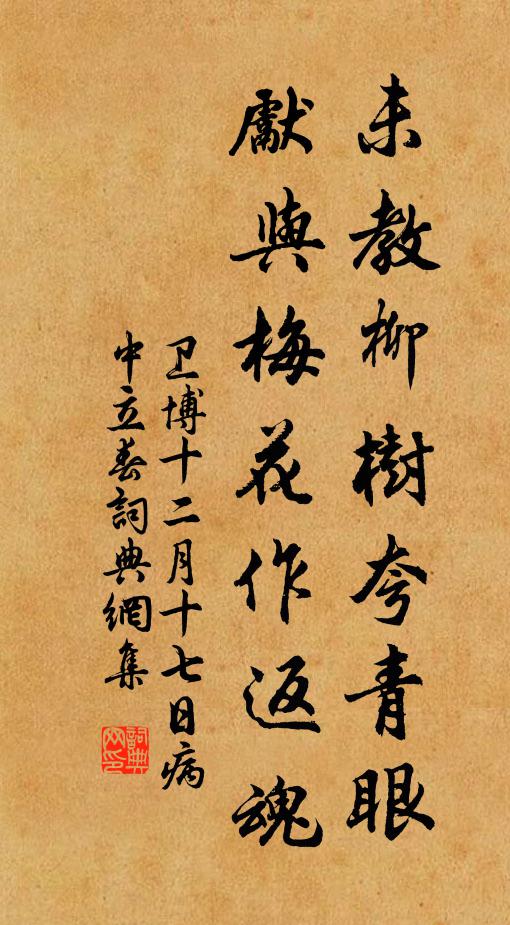 未教柳樹夸青眼
獻與梅花作返魂
卫博十二月十七日病
中立春詞典網集
詞典
网印